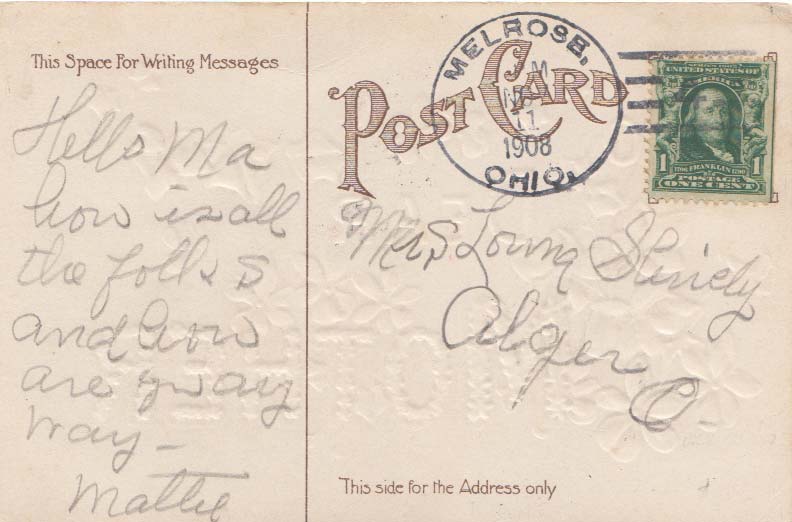 This Space For Writing Messages
POST CARD
MELROSE,
M
11
1908
OHIO.
UNITED STATES OF AMERICA
1706 FRANKLIN 1790
1 POSTAGE 1
ONE CENT
Hello Ma
how is all
the folks
and how
are
way –
Mattie
Mrs
Alger
O.
This side for the Address only